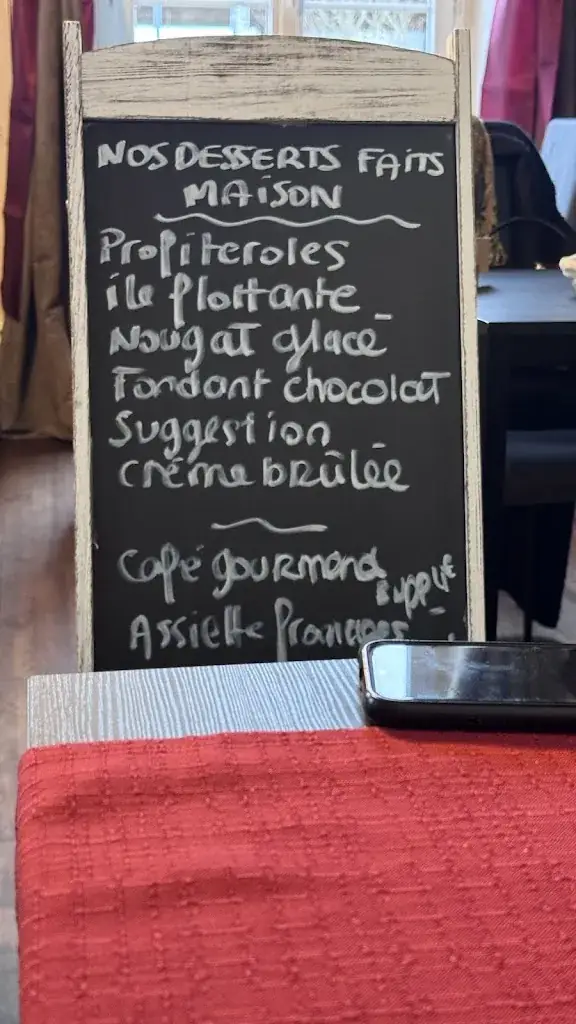 NOS DESSERTS FAITS
MAISON
Profiteroles
île flottante
Nougat glacé
Fondant chocolat
Suggestion
crème brûlée
Café gourmand
Assiette fromages